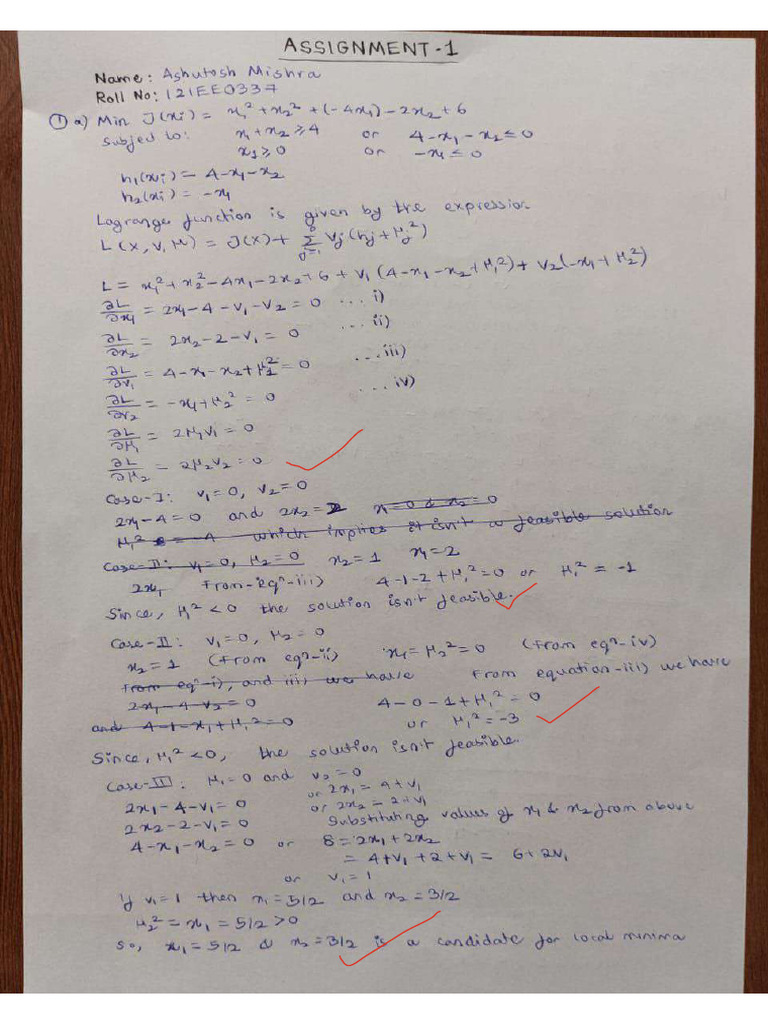 ASSIGNMENT-1
Name: Ashutosh Mishra
Roll No: 121EE0337
① a) Min J(xi) = x₁² + x₂² + (-4x₁) - 2x₂ + 6
Subject to: x₁ + x₂ ≥ 4 or 4 - x₁ - x₂ ≤ 0
x₁ ≥ 0 or -x₁ ≤ 0
h₁(xi) = 4 - x₁ - x₂
h₂(xi) = -x₁
Lagrange function is given by the expression
L(x, v, μ) = J(x) + Σ vj (hj + μj²)
L = x₁² + x₂² - 4x₁ - 2x₂ + 6 + v₁ (4 - x₁ - x₂ + μ₁²) + v₂ (-x₁ + μ₂²)
∂L/∂x₁ = 2x₁ - 4 - v₁ - v₂ = 0 ... i)
∂L/∂x₂ = 2x₂ - 2 - v₁ = 0 ... ii)
∂L/∂v₁ = 4 - x₁ - x₂ + μ₁² = 0 ... iii)
∂L/∂v₂ = -x₁ + μ₂² = 0 ... iv)
∂L/∂μ₁ = 2μ₁v₁ = 0
∂L/∂μ₂ = 2μ₂v₂ = 0
Case-I: v₁ = 0, v₂ = 0
2x₁ - 4 = 0 and 2x₂ = 2 x₁ = 0 & x₂ = 0
μ₁² = -4 which implies it isn't a feasible solution
Case-II: v₁ = 0, μ₂ = 0 x₂ = 1 x₁ = 2
2x₁ From eqⁿ-iii) 4 - 1 - 2 + μ₁² = 0 or μ₁² = -1
Since, μ₁² < 0 the solution isn't feasible.
Case-II: v₁ = 0, μ₂ = 0
x₂ = 1 (From eqⁿ-ii) x₁ = μ₂² = 0 (From eqⁿ-iv)
From eqⁿ-i), and iii) we have From equation-iii) we have
2x₁ - 4 - v₂ = 0 4 - 0 - 1 + μ₁² = 0
and 4 - 1 - x₁ + μ₁² = 0 or μ₁² = -3
Since, μ₁² < 0, the solution isn't feasible.
Case-III: μ₁ = 0 and v₂ = 0
2x₁ - 4 - v₁ = 0 or 2x₁ = 4 + v₁
2x₂ - 2 - v₁ = 0 or 2x₂ = 2 + v₁
Substituting values of x₁ & x₂ from above
4 - x₁ - x₂ = 0 or 8 = 2x₁ + 2x₂
= 4 + v₁ + 2 + v₁ = 6 + 2v₁
or v₁ = 1
If v₁ = 1 then x₁ = 5/2 and x₂ = 3/2
μ₂² = x₁ = 5/2 > 0
So, x₁ = 5/2 & x₂ = 3/2 is a candidate for local minima